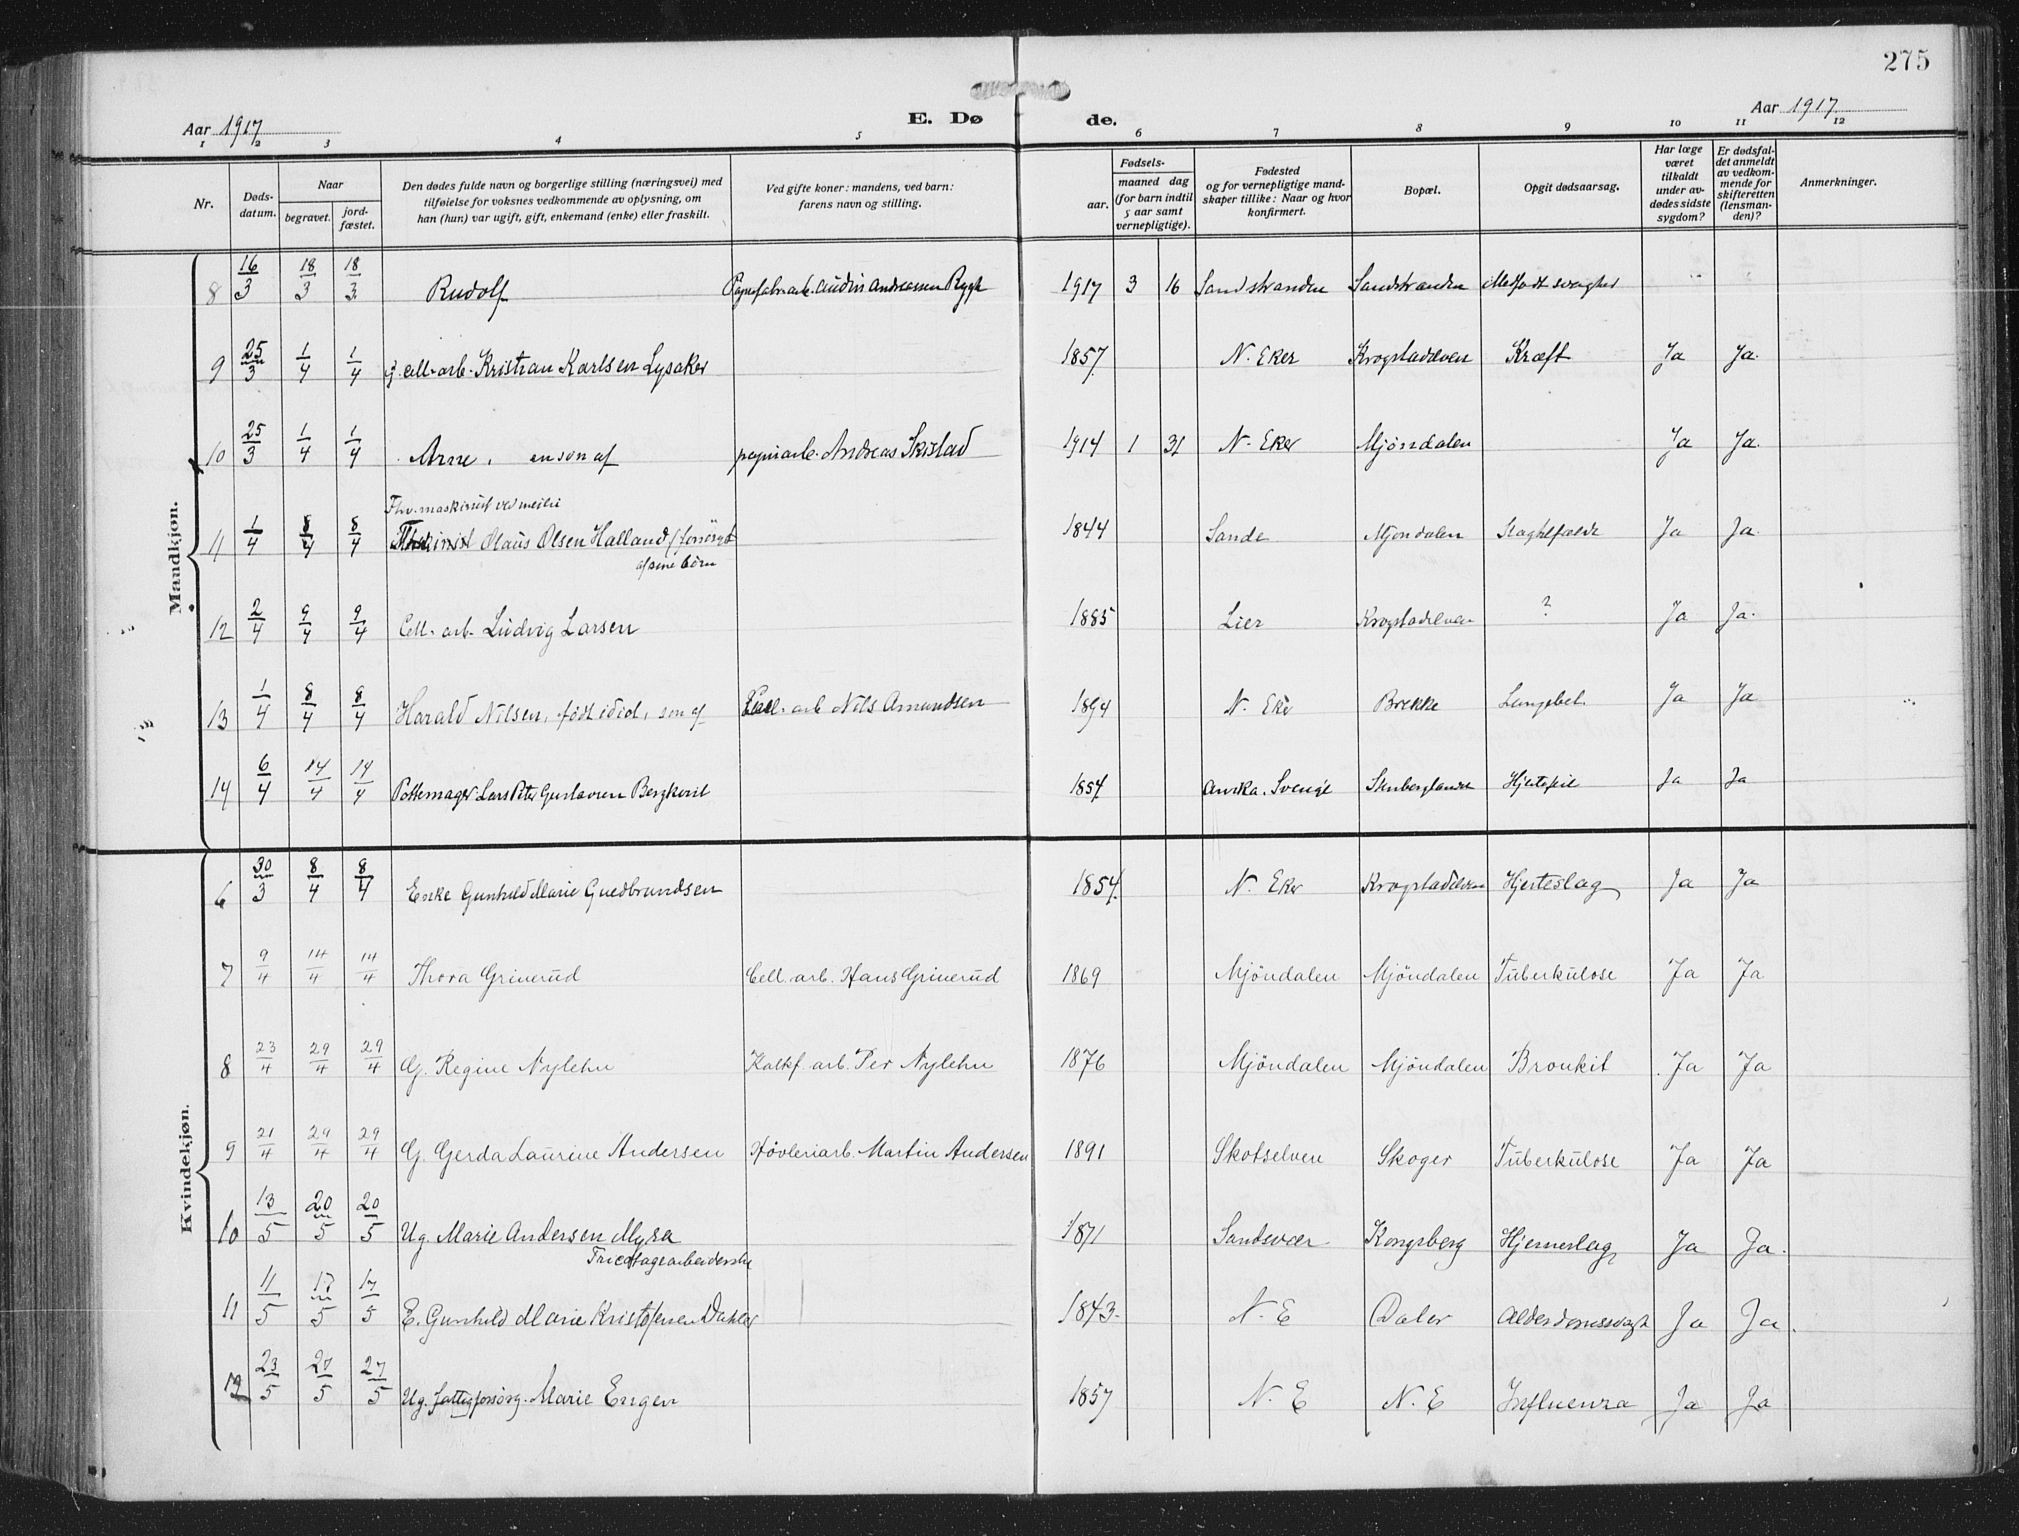 275
Aar 1917 E. Døde. Aar 1917
1 2 3 4 5 6 7 8 9 10 11 12
Nr. Døds-datum. Naar begravet. jord-fæstet. Den dødes fulde navn og borgerlige stilling (næringsvei) med tilføielse for voksnes vedkommende av oplysning, om han (hun) var ugift, gift, enkemand (enke) eller fraskilt. Ved gifte koner: mandens, ved barn: farens navn og stilling. Fødsels- aar. maaned dag (for barn indtil 5 aar samt vernepligtige). Fødested og for vernepligtige mandskaper tillike: Naar og hvor konfirmert. Bopæl. Opgit dødsaarsag. Har læge været tilkaldt under avdødes sidste sygdom? Er dødsfaldet anmeldt av vedkommende for skifteretten (lensmanden)? Anmerkninger.
Mandkjøn.
8 16/3 18/3 18/3 Rudolf Andreassen Rygh 1917 3 16 Sandstranden Sandstranden Medfødt svaghet " "
9 25/3 1/4 1/4 g. cell-arb. Kristian Karlsen Lysaker 1857 N. Eker Krogstadelven Kræft Ja Ja.
10 25/3 1/4 1/4 Arne, en søn af papirarb. Andreas Skistad 1914 1 31 N. Eker Mjøndalen Ja Ja.
Fhv. maskinist ved meieri
11 1/4 8/4 8/4 Olaus Olsen Halland (forsörget 1844 Sande Mjøndalen Ja Ja.
af sine börn
12 2/4 9/4 9/4 Cell-arb. Ludvig Larsen 1885 Lier Krogstadelven ? Ja Ja.
13 1/4 8/4 8/4 Harald Nilsen, født idiot, søn af Cell-arb Nils Amundsen 1894 N. Eker Brekke Lungebet. Ja Ja
14 6/4 14/4 14/4 Pottemager Lars Peter Gustavsen Bergkvist 1854 Sverige Stenberglandet Hjertefeil Ja Ja
Kvindekjøn.
6 30/3 8/4 8/4 Enke Gunhild Marie Gudbrandsen 1854. N. Eker Krogstadelven Hjerteslag Ja Ja
7 9/4 14/4 14/4 Thora Grinerud Cell. arb. Hans Grinerud 1869 Mjöndalen Mjöndalen Tuberkulose Ja Ja
8 23/4 29/4 29/4 G. Regine Nylehn Kalkf. arb. Per Nylehn 1876 Mjöndalen Mjöndalen Bronkit Ja Ja
9 21/4 29/4 29/4 G. Gerda Laurine Andersen Høvleriarb. Martin Andersen 1891 Skotselven Skoger Tuberkulose Ja Ja
10 13/5 20/5 20/5 Ug. Marie Andersen Myra 1871 Sandsvær Kongsberg Hjerneslag Ja Ja.
Tricotagearbeiderske
11 11/5 17/5 17/5 E. Gunhild Marie Kristofersen Dahler 1843. N. E Daler Alderdomssvagh Ja Ja.
12 23/5 27/5 27/5 Ug. fattigforsørg. Marie Engen 1857 N. E N. E Influenza Ja Ja